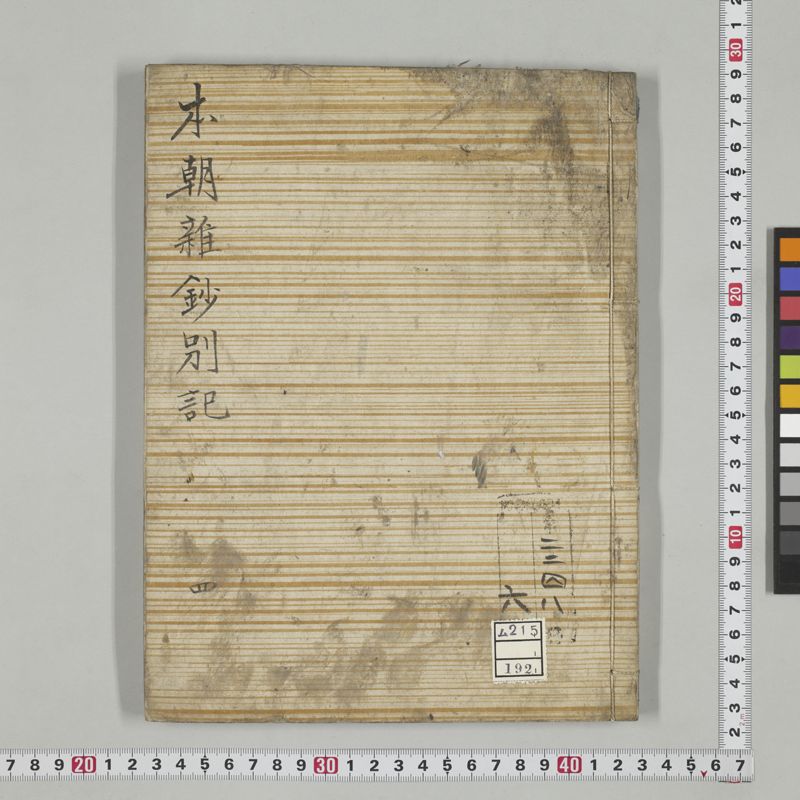 本朝雜鈔別記
四
三三四八
六
ム215
1
1921